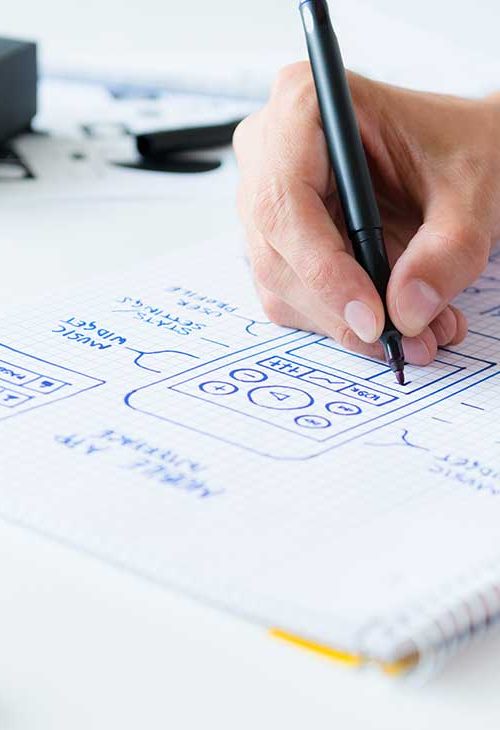 USER
PROFILE
STATS/
SETTINGS
MUSIC
WIDGET
MOBILE APP
INTERFACE
MUSIC
WIDGET